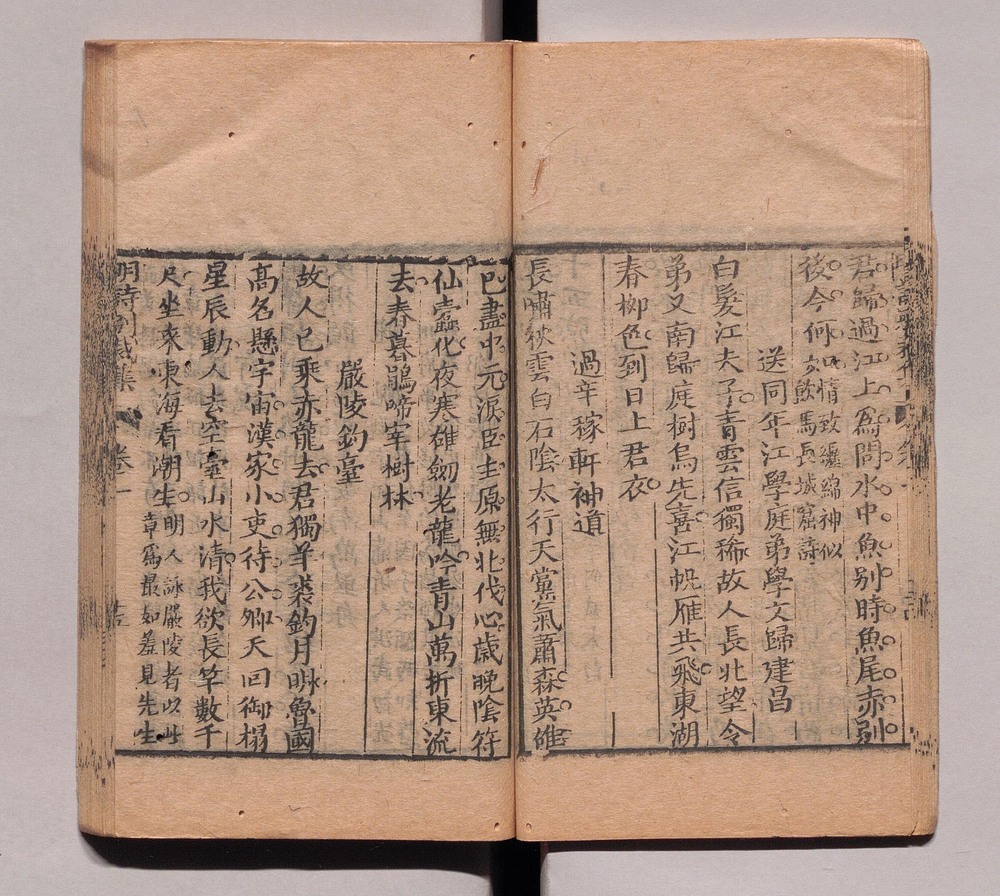 君歸過江上爲問水中魚別時魚尾赤別
後今何如情致纏綿神似
飲馬長城窟詩
送同年江學庭弟學文歸建昌
白髮江夫子青雲信獨稀故人長北望令
弟又南歸庭樹烏先喜江帆雁共飛東湖
春柳色到日上君衣
過辛稼軒神道
長嘯秋雲白石陰太行天黨氣蕭森英雄
已盡中元淚臣主原無北伐心歲晚陰符
仙蠹化夜寒雄劒老龍吟青山萬折東流
去春暮鵑啼宰樹林
嚴陵釣臺
故人已乘赤龍去君獨羊裘釣月明魯國
高名懸宇宙漢家小吏待公卿天回御榻
星辰動人去空臺山水清我欲長竿數千
尺坐來東海看潮生明人詠嚴陵者以此
章爲最如羞見先生
明詩別裁集
卷一